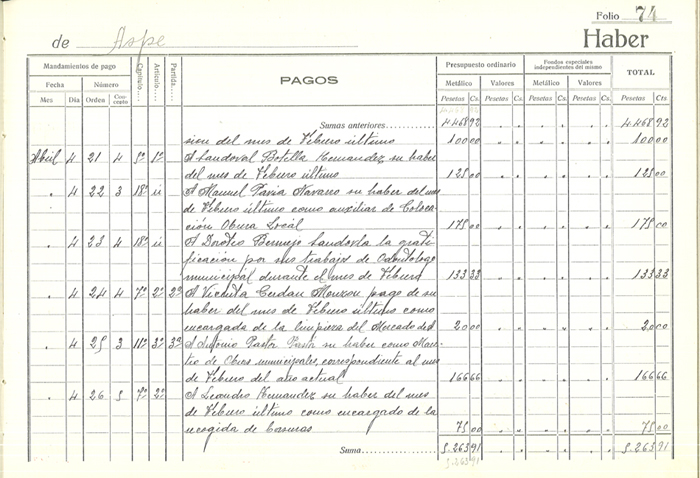 Folio 74
de Aspe Haber
Mandamientos de pago Capítulo Artículo Partida PAGOS Presupuesto ordinario Fondos especiales independientes del mismo TOTAL
Fecha Número Metálico Valores Metálico Valores
Mes Día Orden Concepto Pesetas Cs. Pesetas Cs. Pesetas Cs. Pesetas Cs. Pesetas Cts
Sumas anteriores 4468 92 4.468 92
sion del mes de Febrero último 100 00 100 00
Abril 4 21 4 5º 1º A Sandoval Botella Hernandez su haber
del mes de Febrero último 125 00 125 00
" 4 22 3 18º A Manuel Pavia Navarro su haber del mes
de Febrero último como auxiliar de Coloca
ción Obrera Local 175 00 175 00
" 4 23 4 18º A Doroteo Bermejo la grati
ficacion por sus trabajos de Odontologo
municipal durante el mes de Febrero 133 33 133 33
" 4 24 4 7º 2º 2º A Vicenta Cerdan Monzon pago de su
haber del mes de Febrero último como
encargada de la limpieza del Mercado 20 00 20 00
" 4 25 3 11º 3º 3º A Antonio Pastor Pastor su haber como Maes
tro de Obras municipales, correspondiente al mes
de Febrero del año actual 166 66 166 66
" 4 26 5 7º 2º A Leandro Hernandez su haber del mes
de Febrero último como encargado de la
recogida de basuras 75 00 75 00
Suma 5.263 91 5.263 91
5.263 91